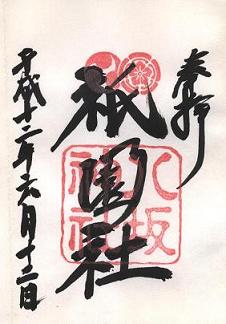 奉拝
祇園社
八坂神社
平成十二年六月十二日